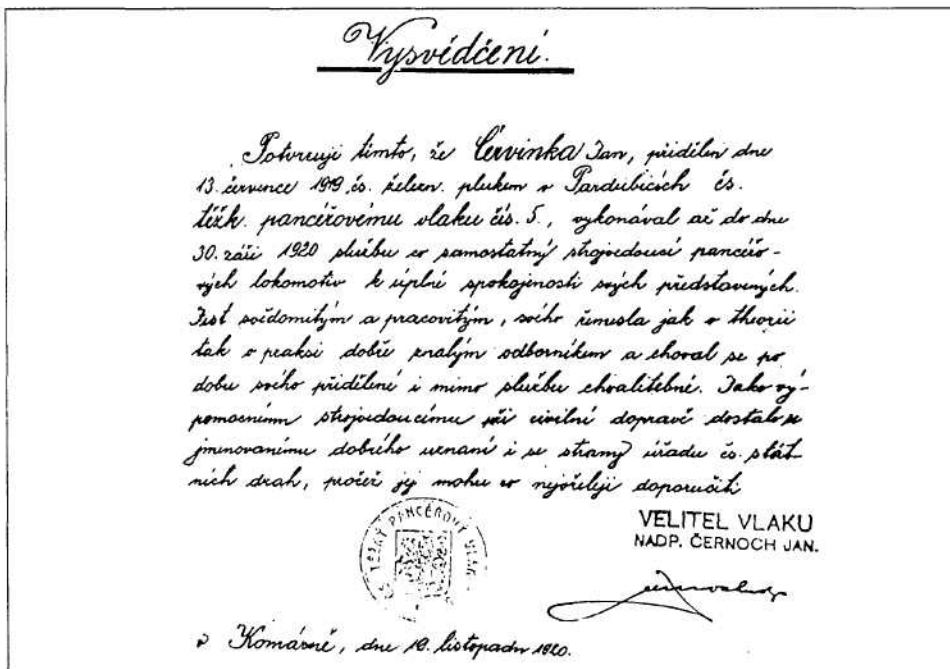 Vysvědčení.
Potvrzuji tímto, že Červinka Jan, přidělen dne
13. července 1919 čs. železn. plukem v Pardubicích čs.
těžk. pancéřovému vlaku čís. 5., vykonával až do dne
30. září 1920 službu co samostatný strojvedoucí pancéřo-
vých lokomotiv k úplné spokojenosti svých představených.
Jest svědomitým a pracovitým, svého řemesla jak v theorii
tak v praksi dobře znalým odborníkem a choval se po
dobu svého přidělení i mimo službu chvalitebně. Jako vý-
pomocnému strojvedoucímu při civilní dopravě dostalo se
jmenovanému dobrého uznání i se strany úřadu čs. stát-
ních drah, pročež jej mohu co nejvřeleji doporučiti
ČS. TĚŽKÝ PANCÉŘOVÝ VLAK
VELITEL VLAKU
NADP. ČERNOCH JAN.
v Komárně, dne 19. listopadu 1920.